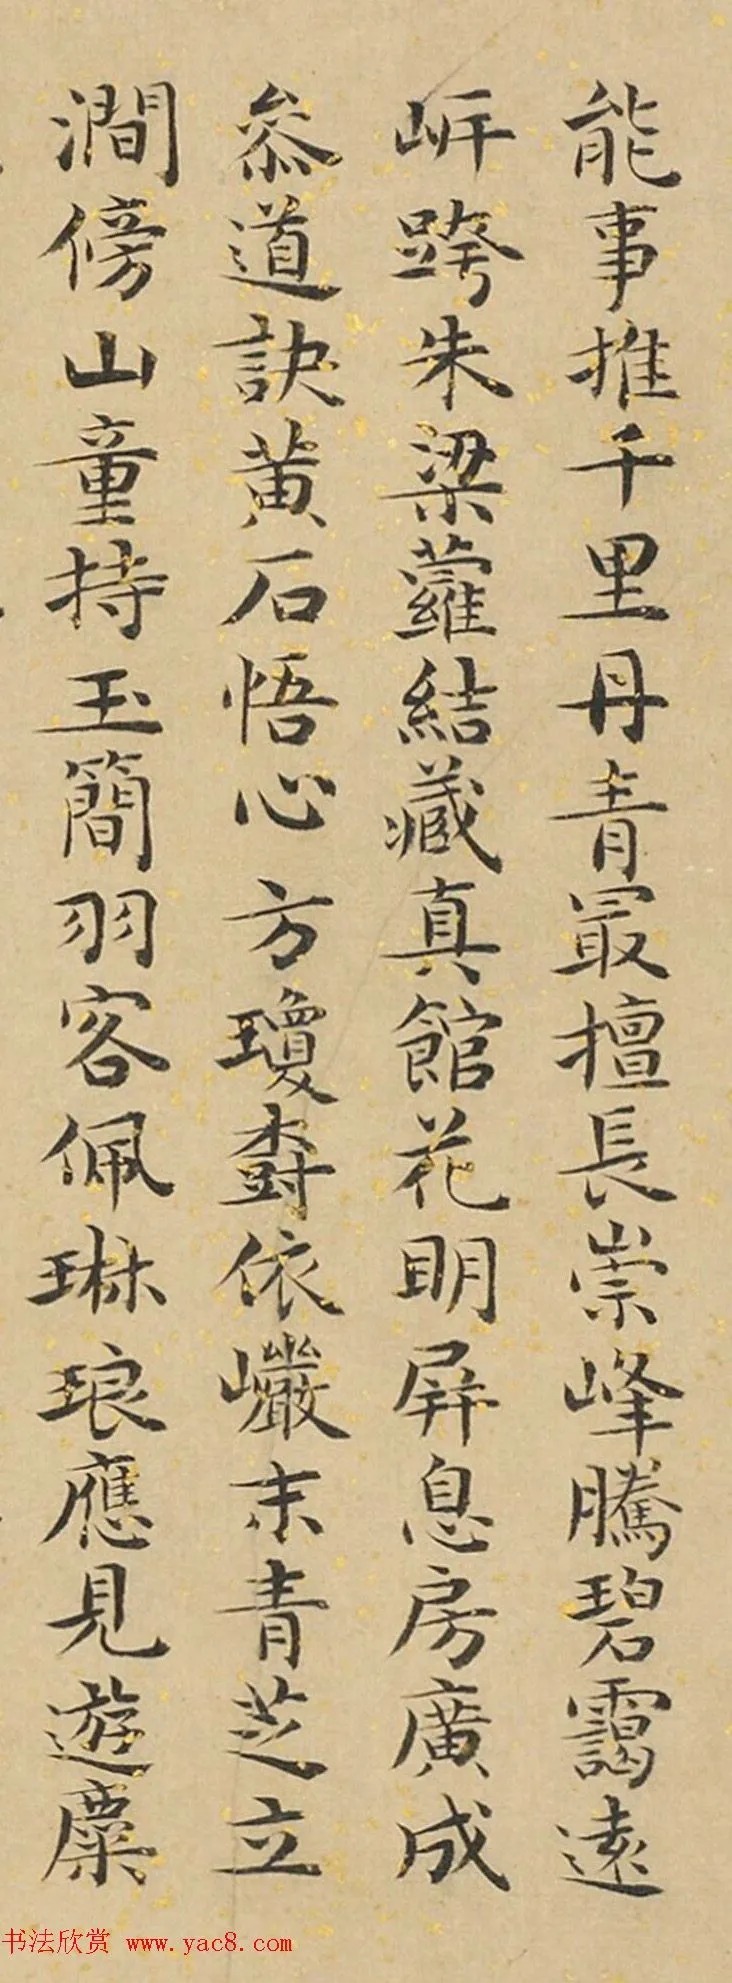 能事推千里丹青最擅長崇峰騰碧靄遠
岍跨朱梁蘿結藏真館花明屏息房廣成
叅道訣黄石悟心方瓊樹依巘末青芝立
澗傍山童持玉簡羽客佩琳琅應見遊麋
书法欣赏 www.yac8.com